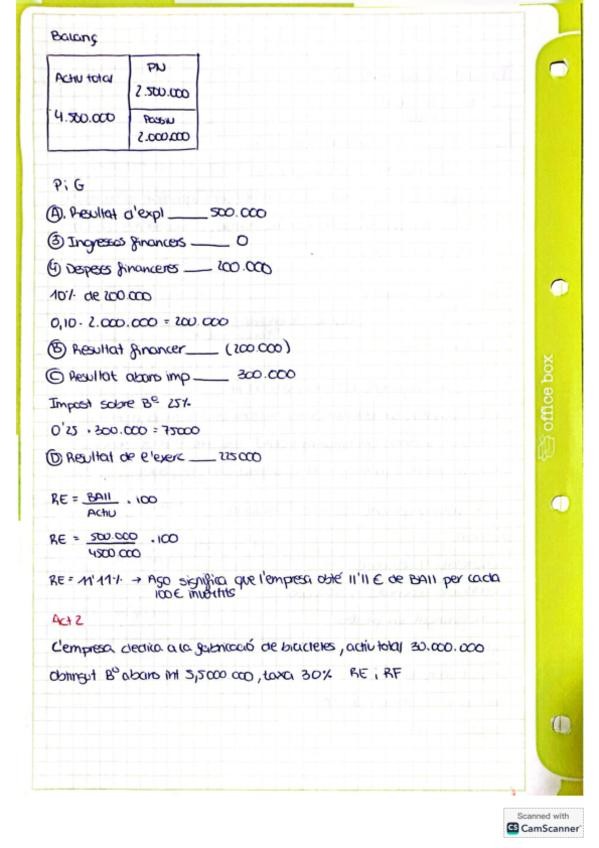 Balanç
Actiu total
4.500.000
PN
2.500.000
Passiu
2.000.000
P i G
A). Resultat d'expl ____ 500.000
3) Ingressos financers ____ 0
4) Despeses financeres ____ 200.000
10% de 200.000
0,10 · 2.000.000 = 200.000
B) Resultat financer ____ (200.000)
C) Resultat abans imp ____ 300.000
Impost sobre Bº 25%
0'25 · 300.000 = 75000
D) Resultat de l'exerc ____ 225000
RE = BAII / Actiu · 100
RE = 500.000 / 4500 000 · 100
RE = 11'11% → Aço significa que l'empresa obté 11'11 € de BAII per cada
100€ invertits
Act 2
L'empresa dedica a la fabricació de bicicletes, actiu total 30.000.000
obtingut Bº abans int 5,5000 000, taxa 30% RE i RF
office box
Scanned with
CS CamScanner